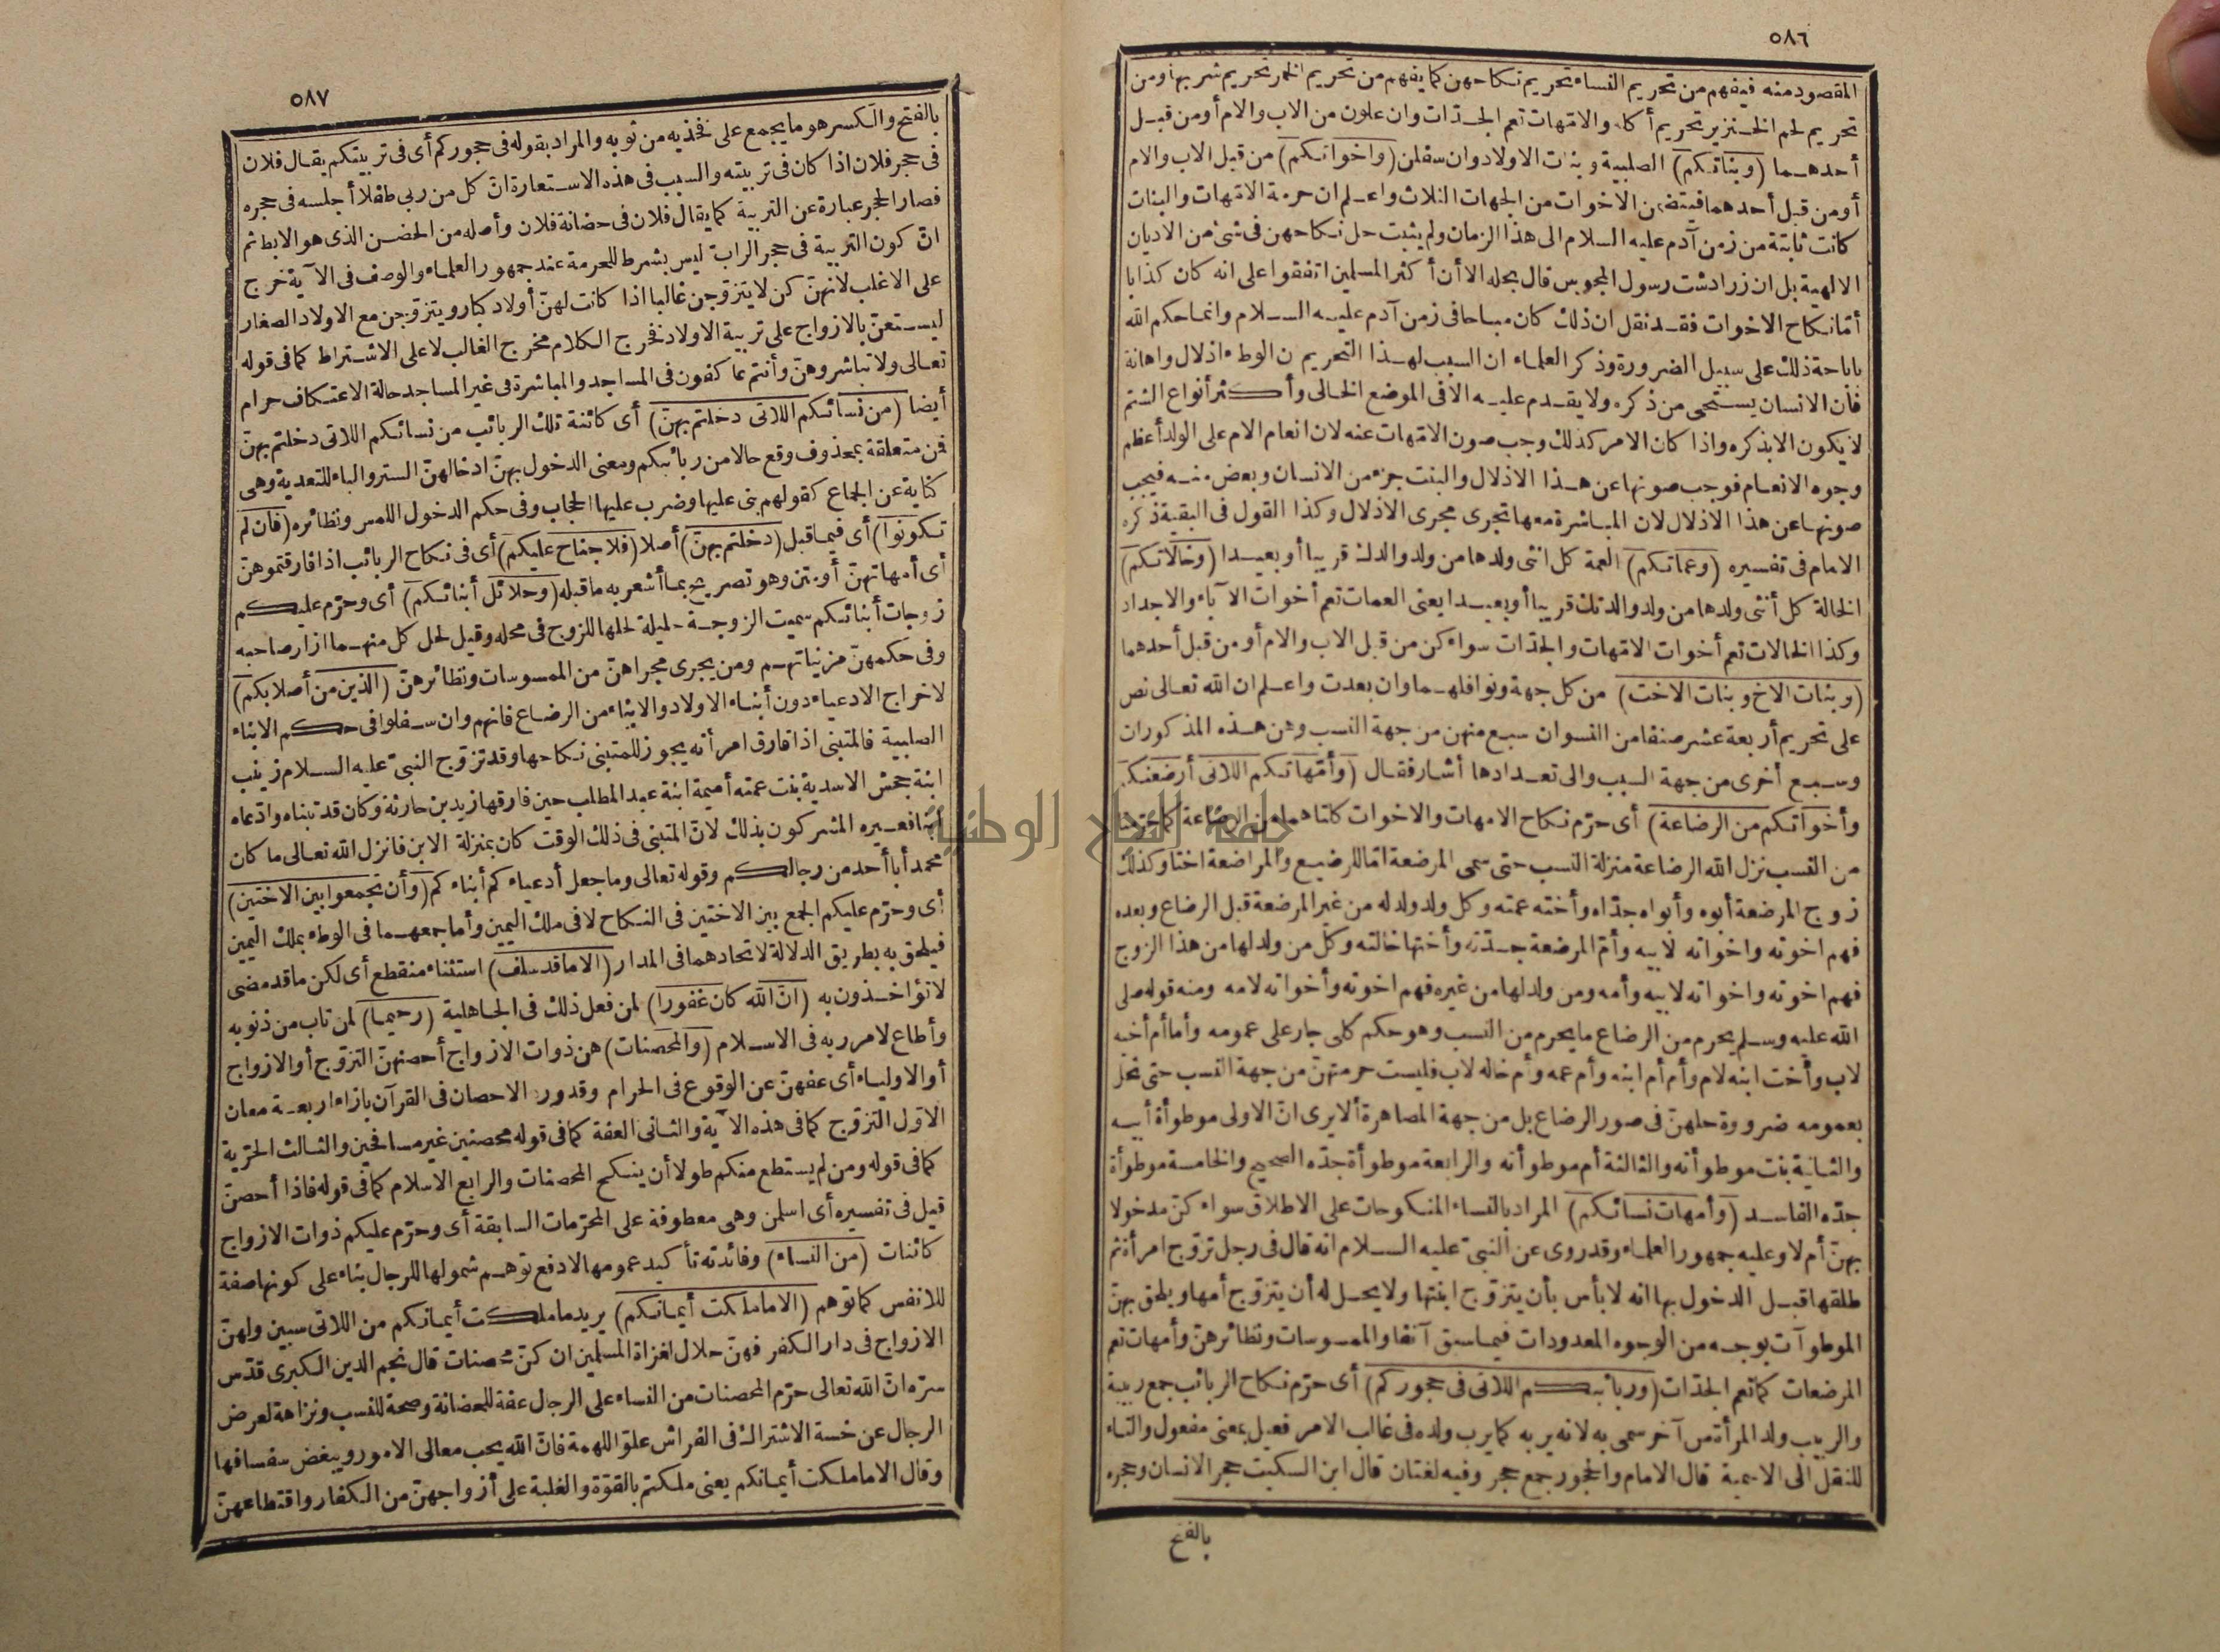 ٥٨٦
المقصود منه فيفهم من تحريم النساء تحريم نكاحهن كما يفهم من تحريم الخمر تحريم شربها ومن
تحريم لحم الخنزير تحريم أكله والامّهات تعم الجدّات وان علون من الاب والام أو من قبل
أحدهما (وبناتكم) الصلبية وبنات الاولاد وان سفلن (واخواتكم) من قبل الاب والام
أو من قبل أحدهما فيتضمن الاخوات من الجهات الثلاث واعلم ان حرمة الامّهات والبنات
كانت ثابتة من زمن آدم عليه السلام الى هذا الزمان ولم يثبت حل نكاحهن فى شئ من الاديان
الالهية بل ان زرادشت رسول المجوس قال بحله الا أن أكثر المسلمين اتفقوا على انه كان كذابا
أمّا نكاح الاخوات فقد نقل ان ذلك كان مباحا فى زمن آدم عليه السلام وانما حكم الله
باباحة ذلك على سبيل الضرورة وذكر العلماء ان السبب لهذا التحريم ن الوطء اذلال واهانة
فان الانسان يستحى من ذكره ولا يقدم عليه الا فى الموضع الخالى وأكثر أنواع الشتم
لا يكون الا بذكره واذا كان الامر كذلك وجب صون الامّهات عنه لان انعام الام على الولد أعظم
وجوه الانعام فوجب صونها عن هذا الاذلال والبنت جزء من الانسان وبعض منه فيجب
صونها عن هذا الاذلال لان المباشرة معها تجرى مجرى الاذلال وكذا القول فى البقية ذكره
الامام فى تفسيره (وعماتكم) العمة كل انثى ولدها من ولد والدك قريبا أو بعيدا (وخالاتكم)
الخالة كل أنثى ولدها من ولد والدتك قريبا أو بعيدا يعنى العمات تعم أخوات الآباء والاجداد
وكذا الخالات تعم أخوات الامّهات والجدّات سواء كن من قبل الاب والام أو من قبل أحدهما
(وبنات الاخ وبنات الاخت) من كل جهة ونوافلهما وان بعدت واعلم ان الله تعالى نص
على تحريم أربعة عشر صنفا من النسوان سبع منهن من جهة النسب وهن هذه المذكورات
وسبع أخرى من جهة السبب والى تعدادها أشار فقال (وأمّهاتكم اللاتى أرضعنكم
وأخواتكم من الرضاعة) أى حرّم نكاح الامهات والاخوات كلتاهما من الرضاعة كما
من النسب نزل الله الرضاعة منزلة النسب حتى سمى المرضعة امّا للرضيع والمراضعة اختا وكذلك
زوج المرضعة أبوه وأبواه جدّاه وأخته عمته وكل ولد ولد له من غير المرضعة قبل الرضاع وبعده
فهم اخوته واخواته لابيه وأمّ المرضعة جدّته وأختها خالته وكل من ولد لها من هذا الزوج
فهم اخوته واخواته لابيه وأمه ومن ولد لها من غيره فهم اخوته وأخواته لامه ومنه قوله صلى
الله عليه وسلم يحرم من الرضاع ما يحرم من النسب وهو حكم كلى جار على عمومه وأما أم أخيه
لاب وأخت ابنه لام وأم أم ابنه وأم عمه وأم خاله لاب فليست حرمتهنّ من جهة النسب حتى تحل
بعمومه ضرورة حلهنّ فى صور الرضاع بل من جهة المصاهرة ألا يرى انّ الاولى موطوأة أبيه
والثانية بنت موطوأته والثالثة أم موطوأته والرابعة موطوأة جدّه الصحيح والخامسة موطوأة
جدّه الفاسد (وأمهات نسائكم) المراد بالنساء المنكوحات على الاطلاق سواء كنّ مدخولا
بهنّ أم لا وعليه جمهور العلماء وقد روى عن النبىّ عليه السلام انه قال فى رجل تزوّج امرأة ثم
طلقها قبل الدخول بها انه لا بأس بأن يتزوّج ابنتها ولا يحل له أن يتزوّج أمها ويلحق بهنّ
الموطوآت بوجه من الوجوه المعدودات فيما سبق آنفا والممسوسات ونظائرهنّ وأمهات تعم
المرضعات كما تعم الجدّات (وربائبكم اللاتى فى حجوركم) أى حرّم نكاح الربائب جمع ربيبة
والربيب ولد المرأة من آخر سمى به لانه يربه كما يرب ولده فى غالب الامر فعيل بمعنى مفعول والتاء
للنقل الى الاسمية قال الامام والحجور جمع حجر وفيه لغتان قال ابن السكيت حجر الانسان وحجره
بالفتح
٥٨٧
بالفتح والكسر هو ما يجمع على فخذيه من ثوبه والمراد بقوله فى حجوركم أى فى تربيتكم يقال فلان
فى حجر فلان اذا كان فى تربيته والسبب فى هذه الاستعارة انّ كل من ربى طفلا أجلسه فى حجره
فصار الحجر عبارة عن التربية كما يقال فلان فى حضانة فلان وأصله من الحضن الذى هو الابط ثم
انّ كون التربية فى حجر الرابّ ليس بشرط للحرمة عند جمهور العلماء والوصف فى الآية خرج
على الاغلب لانهنّ كن لا يتزوّجن غالبا اذا كانت لهنّ أولاد كبار ويتزوّجن مع الاولاد الصغار
ليستعنّ بالازواج على تربية الاولاد فخرج الكلام مخرج الغالب لا على الاشتراط كما فى قوله
تعالى ولا تباشروهنّ وأنتم عاكفون فى المساجد والمباشرة فى غير المساجد حالة الاعتكاف حرام
أيضا (من نسائكم اللاتى دخلتم بهنّ) أى كائنة تلك الربائب من نسائكم اللاتى دخلتم بهنّ
فمن متعلقة بمحذوف وقع حالا من ربائبكم ومعنى الدخول بهنّ ادخالهنّ الستر والباء للتعدية وهى
كناية عن الجماع كقولهم بنى عليها وضرب عليها الحجاب وفى حكم الدخول اللمس ونظائره (فان لم
تكونوا) أى فيما قبل (دخلتم بهنّ) أصلا (فلا جناح عليكم) أى فى نكاح الربائب اذا فارقتموهنّ
أى أمهاتهنّ أو متن وهو تصريح بما أشعر به ما قبله (وحلائل أبنائكم) أى وحرّم عليكم
زوجات أبنائكم سميت الزوجة حليلة لحلها للزوج فى محله وقيل لحل كل منهما ازار صاحبه
وفى حكمهنّ مزنياتهم ومن يجرى مجراهنّ من الممسوسات ونظائرهنّ (الذين من أصلابكم)
لاخراج الادعياء دون أبناء الاولاد والابناء من الرضاع فانهم وان سفلوا فى حكم الابناء
الصلبية فالمتبنى اذا فارق امرأته يجوز للمتبنى نكاحها وقد تزوّج النبىّ عليه السلام زينب
ابنة جحش الاسدية بنت عمته أميمة ابنة عبد المطلب حين فارقها زيد بن حارثة وكان قد تبناه وادّعاه
ابنا فعيره المشركون بذلك لانّ المتبنى فى ذلك الوقت كان بمنزلة الابن فانزل الله تعالى ما كان
محمد أبا أحد من رجالكم وقوله تعالى وما جعل أدعياءكم أبناءكم (وأن تجمعوا بين الاختين)
أى وحرّم عليكم الجمع بين الاختين فى النكاح لا فى ملك اليمين وأما جمعهما فى الوطء بملك اليمين
فيلحق به بطريق الدلالة لاتحادهما فى المدار (الا ما قد سلف) استثناء منقطع أى لكن ما قد مضى
لا تؤاخذون به (انّ الله كان غفورا) لمن فعل ذلك فى الجاهلية (رحيما) لمن تاب من ذنوبه
وأطاع لامر ربه فى الاسلام (والمحصنات) هن ذوات الازواج أحصنهنّ التزوّج أو الازواج
أو الاولياء أى عفهنّ عن الوقوع فى الحرام وقد ورد الاحصان فى القرآن بازاء اربعة معان
الاوّل التزوّج كما فى هذه الآية والثانى العفة كما فى قوله محصنين غير مسافحين والثالث الحرّية
كما فى قوله ومن لم يستطع منكم طولا أن ينكح المحصنات والرابع الاسلام كما فى قوله فاذا أحصنّ
قيل فى تفسيره أى اسلمن وهى معطوفة على المحرّمات السابقة أى وحرّم عليكم ذوات الازواج
كائنات (من النساء) وفائدته تأكيد عمومها لا دفع توهم شمولها للرجال بناء على كونها صفة
للانفس كما توهم (الا ما ملكت أيمانكم) يريد ما ملكت أيمانكم من اللاتى سبين ولهنّ
الازواج فى دار الكفر فهنّ حلال لغزاة المسلمين ان كنّ محصنات قال نجم الدين الكبرى قدّس
سرّه انّ الله تعالى حرّم المحصنات من النساء على الرجال عفة للحضانة وصحة للنسب ونزاهة لعرض
الرجال عن خسة الاشتراك فى الفراش علوّا للهمة فانّ الله يحب معالى الامور ويبغض سفسافها
وقال الا ما ملكت أيمانكم يعنى ملكتم بالقوّة والغلبة على أزواجهنّ من الكفار واقتطاعهنّ
جامعة النجاح الوطنية